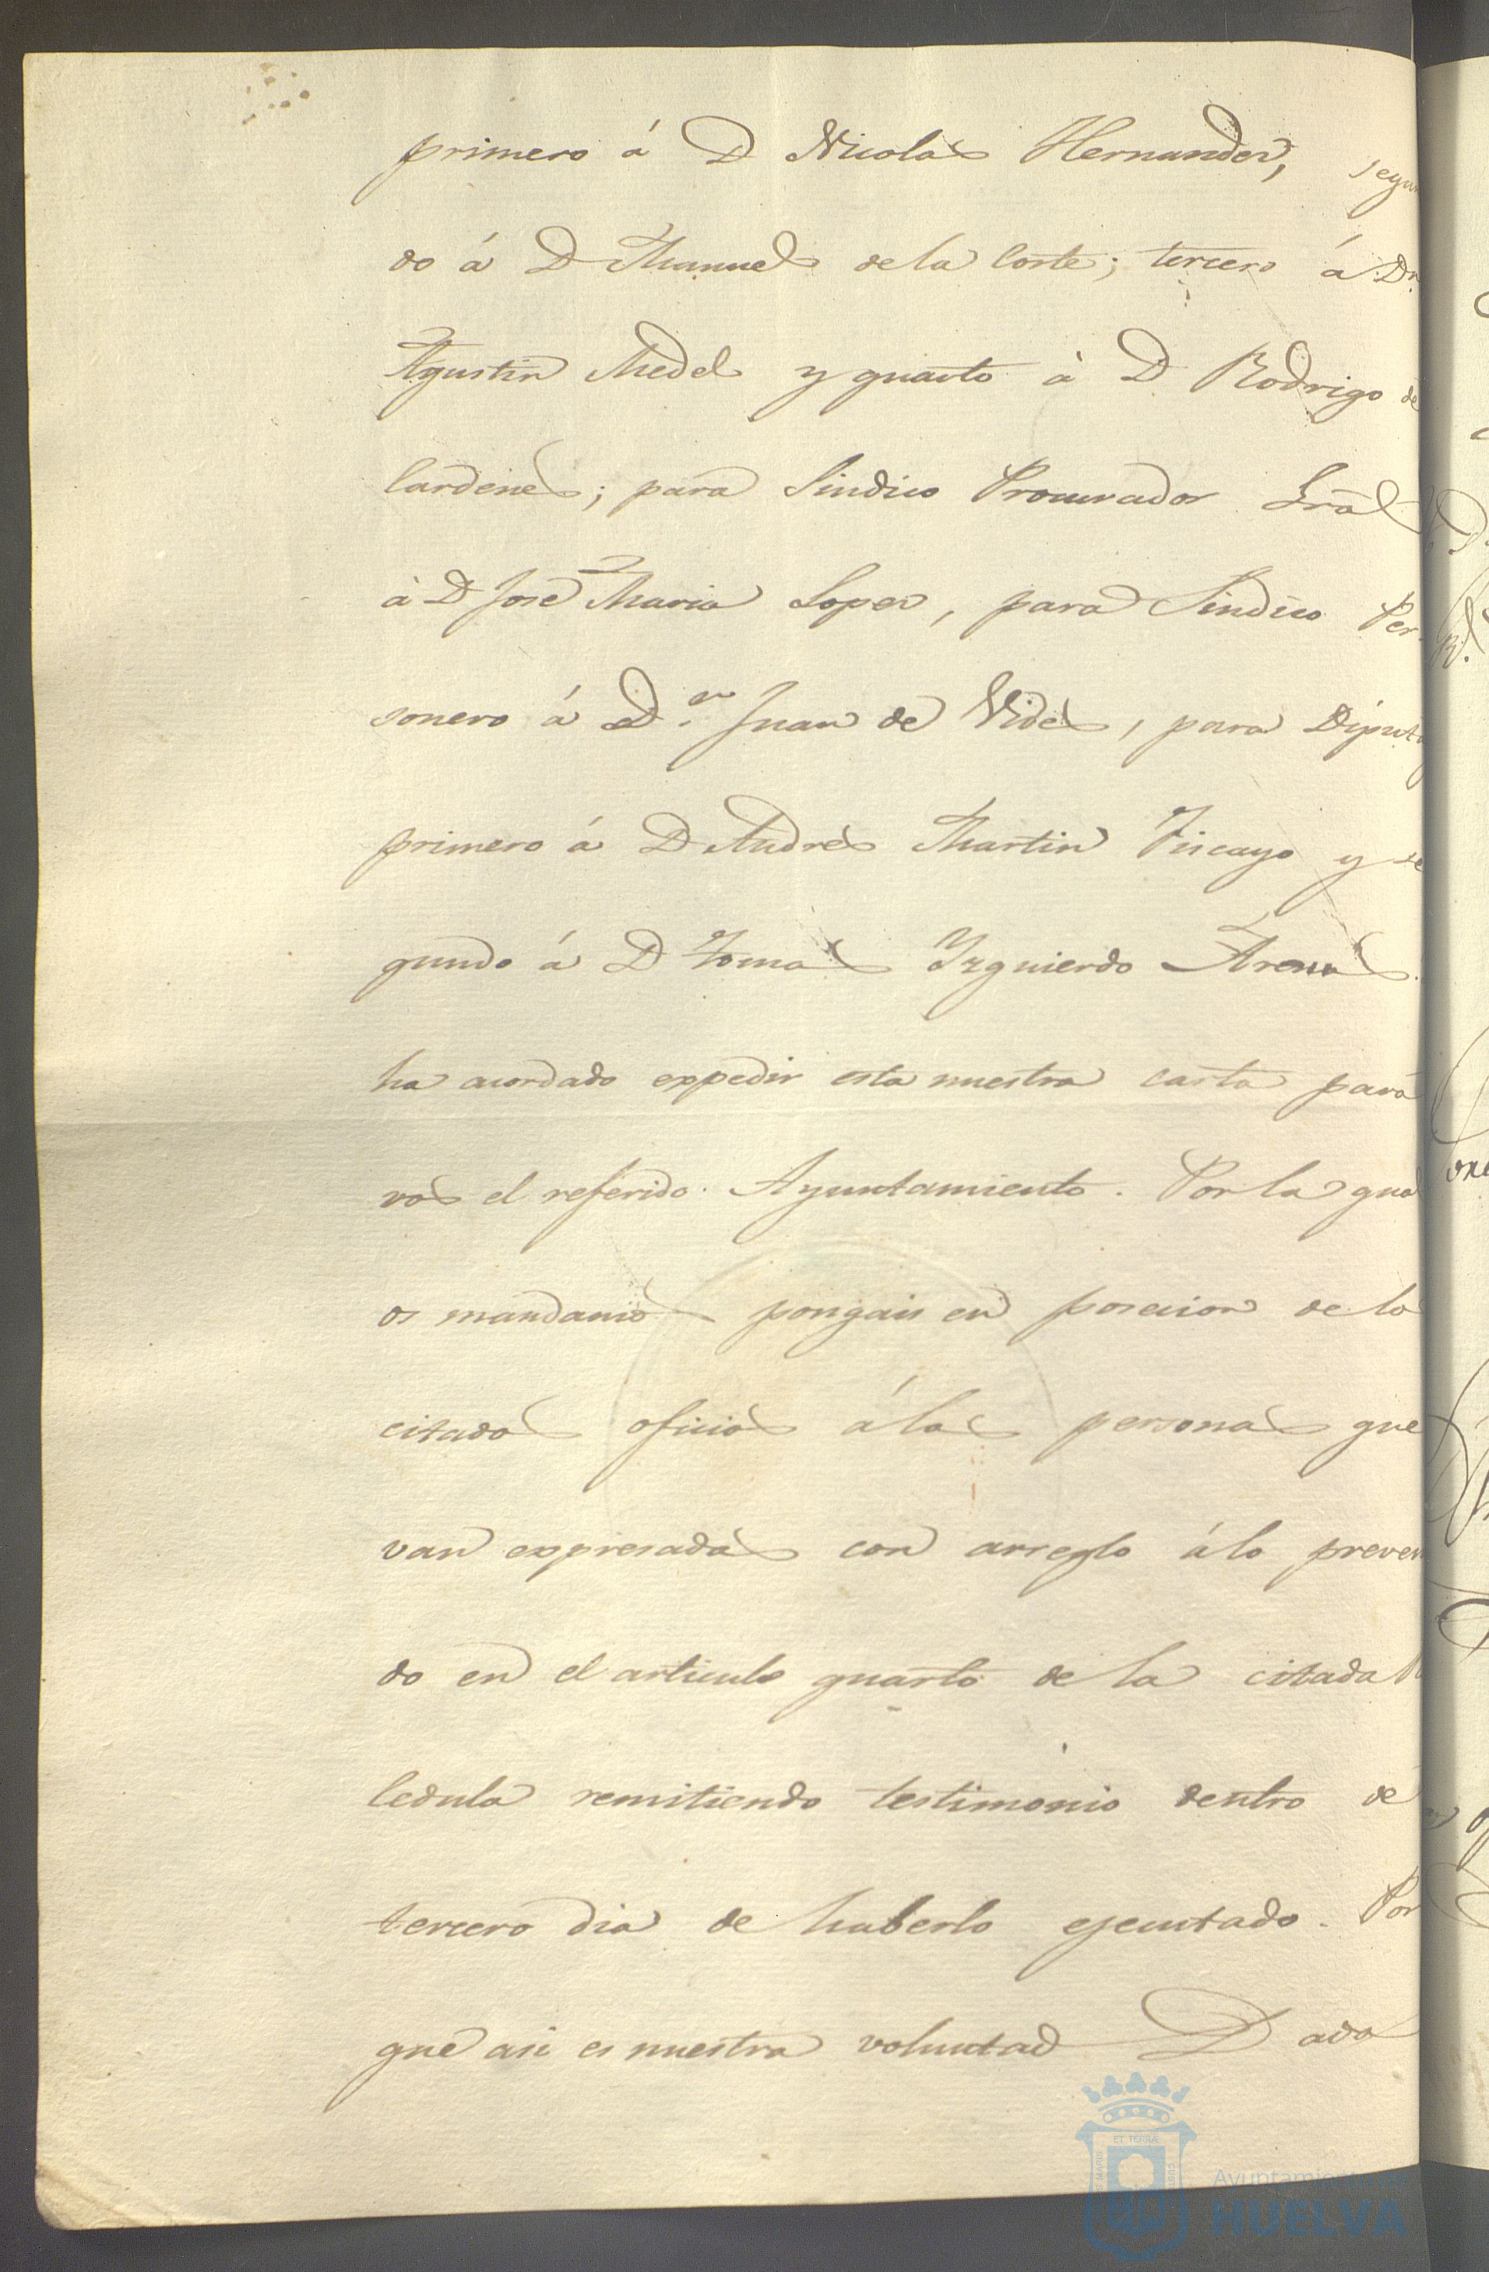 primero á D Nicolas Hernandez, segun
do á D Manuel de la Corte; tercero á Dn
Agustin Medel y quarto à D Rodrigo de
Cardenes; para Sindico Procurador Gral
à D José Maria Lopez, para Sindico Per
sonero á D.n Juan de Vides, para Diput
primero á D Andres Martin Viscayo y se
gundo á D Tomas Izquierdo Arenas.
ha acordado expedir esta nuestra carta para
vos el referido Ayuntamiento. Por la qual
os mandamos pongais en posecion de lo
citados oficios á las personas que
van expresadas con arreglo á lo preveni
do en el articulo quarto de la citada
Cedula remitiendo testimonio dentro de
tercero dia de haberlo ejecutado. Por
que asi es nuestra voluntad Dada
ET TERRÆ
Ayuntamiento de
HUELVA